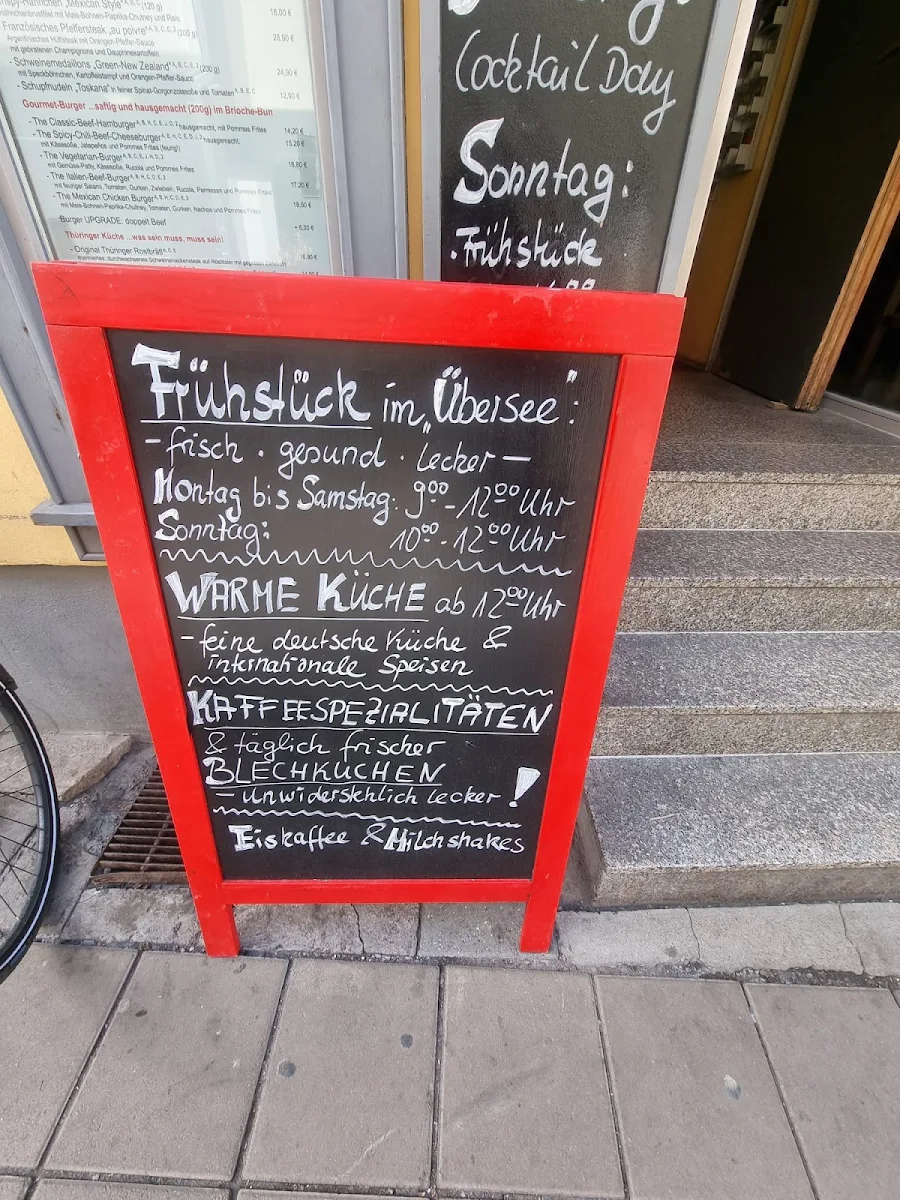 französisches Pfeffersteak „au poivre" A, B, C, E, J (200 g)
Argentinisches Hüftsteak mit Orangen-Pfeffer-Sauce
mit gebratenen Champignons und Dauphinekartoffeln
18,00 €
28,90 €
- Schweinemedaillons „Green-New Zealand" A, B, C, E, J (200 g)
mit Speckböhnchen, Kartoffelstampf und Orangen-Pfeffer-Sauce
24,90 €
- Schupfnudeln „Toskana" in feiner Spinat-Gorgonzolasoße und Tomaten A, B, C, E
12,90 €
Gourmet-Burger ...saftig und hausgemacht (200g) im Brioche-Bun
- The Classic-Beef-Hamburger hausgemacht, mit Pommes Frites
14,20 €
- The Spicy-Chili-Beef-Cheeseburger hausgemacht,
mit Käsesoße, Jalapeños und Pommes Frites (feurig!)
15,20 €
- The Vegetarian-Burger
mit Gemüse-Patty, Käsesoße, Rucola und Pommes Frites
- The Italien-Beef-Burger
mit feuriger Salami, Tomaten, Gurken, Zwiebeln, Rucola, Parmesan und Pommes Frites
17,20 €
- The Mexican Chicken Burger
mit Mais-Bohnen-Paprika-Chutney, Tomaten, Gurken, Nachos und Pommes Frites
Burger UPGRADE: doppelt Beef
+ 6,20 €
Thüringer Küche ...was sein muss, muss sein!
- Original Thüringer Rostbrätl
Cocktail Day
Sonntag:
• Frühstück
Frühstück im „Übersee":
- frisch · gesund · lecker -
Montag bis Samstag: 9⁰⁰ - 12⁰⁰ Uhr
Sonntag: 10⁰⁰ - 12⁰⁰ Uhr
WARME KÜCHE ab 12⁰⁰ Uhr
- feine deutsche Küche &
internationale Speisen
KAFFEESPEZIALITÄTEN
& täglich frischer
BLECHKUCHEN
- unwiderstehlich lecker !
Eiskaffee & Milchshakes